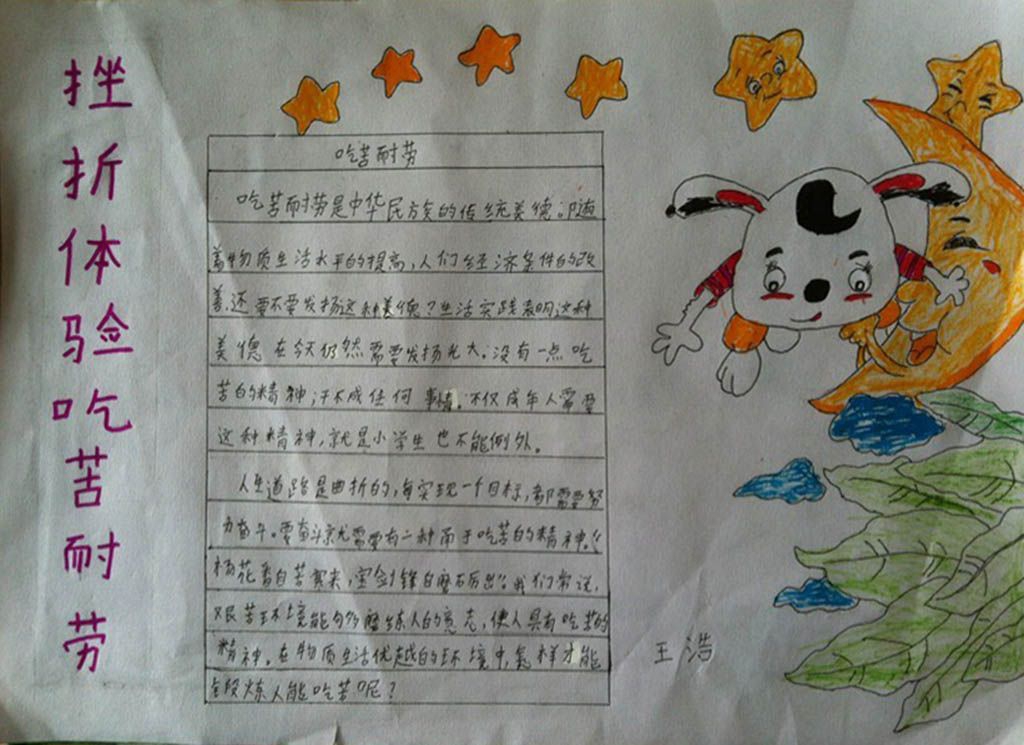 挫折体验吃苦耐劳
吃苦耐劳
吃苦耐劳是中华民族的传统美德。随
着物质生活水平的提高,人们经济条件的改
善,还要不要发扬这种美德?生活实践表明,这种
美德在今天仍然需要发扬光大。没有一点吃
苦的精神,干不成任何事情。不仅成年人需要
这种精神,就是小学生也不能例外。
人生道路是曲折的,每实现一个目标,都需要努
力奋斗。要奋斗就需要有一种而于吃苦的精神。“
杨花香自苦寒来,宝剑锋自磨石厉出”。我们常说,
艰苦环境能够磨练人的意志,使人具有吃苦的
精神。在物质生活优越的环境中,怎样才能
段炼人能吃苦呢?
王浩